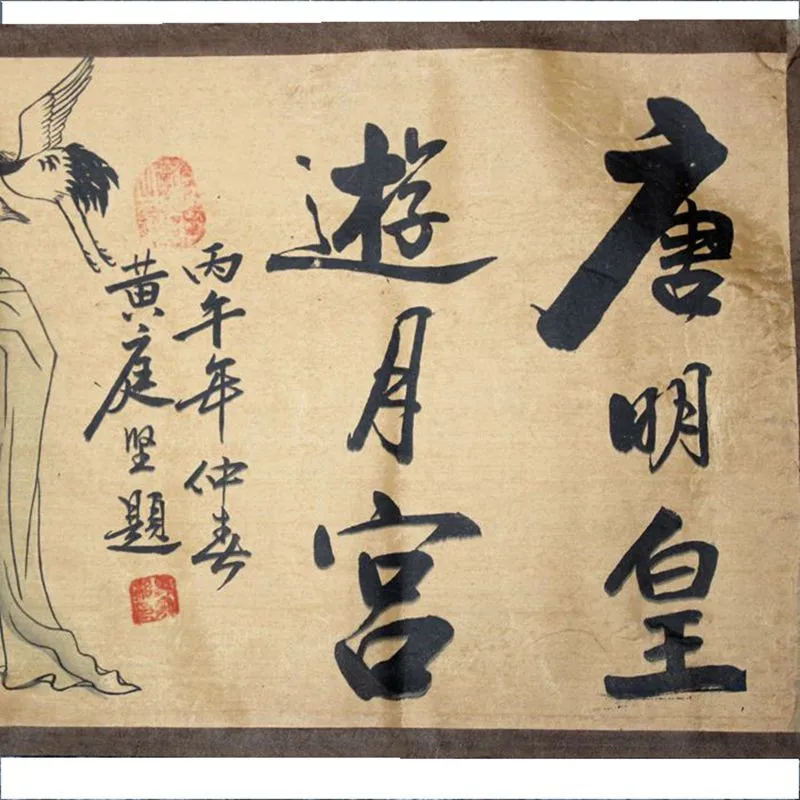 唐明皇
遊月宫
丙午年仲春
黄庭坚題